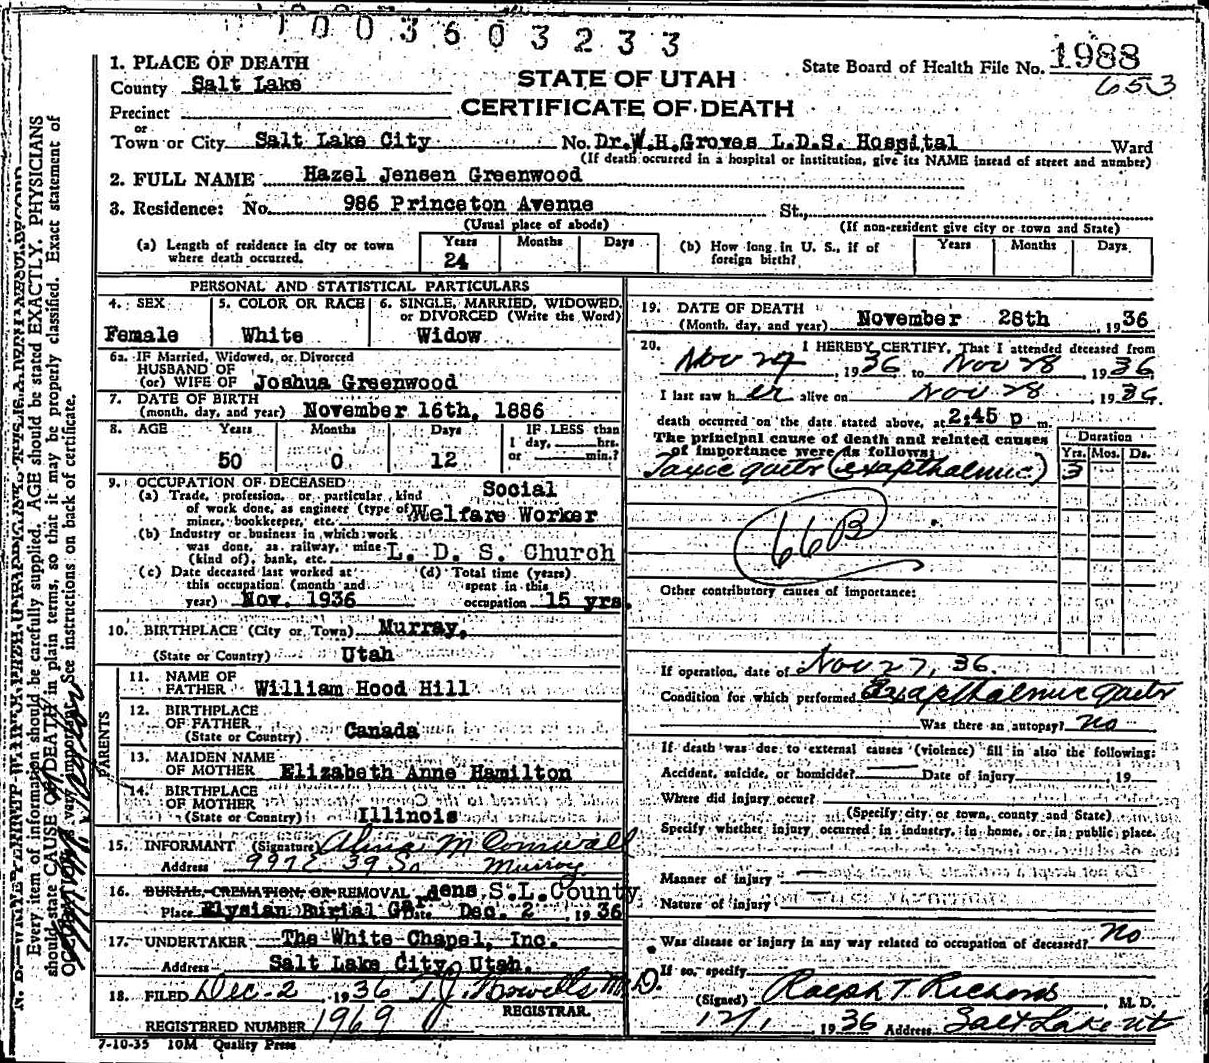 1003603233
1. PLACE OF DEATH
County Salt Lake
STATE OF UTAH
CERTIFICATE OF DEATH
State Board of Health File No. 1988
653
Precinct
or
Town or City Salt Lake City No. Dr. W.H. Groves L.D.S. Hospital Ward
(If death occurred in a hospital or institution, give its NAME instead of street and number)
2. FULL NAME Hazel Jensen Greenwood
3. Residence: No. 986 Princeton Avenue St.,
(Usual place of abode) (If non-resident give city or town and State)
(a) Length of residence in city or town where death occurred. Years 24 Months Days
(b) How long in U. S., if of foreign birth? Years Months Days
PERSONAL AND STATISTICAL PARTICULARS
4. SEX Female
5. COLOR OR RACE White
6. SINGLE, MARRIED, WIDOWED, or DIVORCED (Write the Word) Widow
6a. IF Married, Widowed, or Divorced
HUSBAND OF
(or) WIFE OF Joshua Greenwood
7. DATE OF BIRTH
(month, day, and year) November 16th, 1886
8. AGE Years Months Days IF LESS than
1 day, hrs.
or min.?
50 0 12
9. OCCUPATION OF DECEASED
(a) Trade, profession, or particular kind of work done, as engineer (type of) miner, bookkeeper, etc. Social Welfare Worker
(b) Industry or business in which work was done, as railway, mine (kind of), bank, etc. L. D. S. Church
(c) Date deceased last worked at this occupation (month and year) Nov. 1936
(d) Total time (years) spent in this occupation 15 yrs.
10. BIRTHPLACE (City or Town) Murray,
(State or Country) Utah
PARENTS
11. NAME OF FATHER William Hood Hill
12. BIRTHPLACE OF FATHER
(State or Country) Canada
13. MAIDEN NAME OF MOTHER Elizabeth Anne Hamilton
14. BIRTHPLACE OF MOTHER
(State or Country) Illinois
15. INFORMANT (Signature) M Cornwall
Address 997 E 39 So Murray
16. BURIAL, CREMATION, OR REMOVAL
Place Elysian Burial Gardens S.L. County Date Dec. 2 1936
17. UNDERTAKER The White Chapel, Inc.
Address Salt Lake City, Utah.
18. FILED Dec-2, 1936 T.J. Howells M.D.
REGISTRAR.
REGISTERED NUMBER 1969
7-10-35 10M Quality Press
19. DATE OF DEATH
(Month, day, and year) November 28th, 1936
20. I HEREBY CERTIFY, That I attended deceased from
Nov 27, 1936 to Nov 28, 1936
I last saw her alive on Nov 28, 1936
death occurred on the date stated above, at 2:45 p m.
The principal cause of death and related causes of importance were as follows:
Duration
Yrs. Mos. Ds.
Toxic goiter (exopthalmic) 3
66B
Other contributory causes of importance:
If operation, date of Nov 27, 36
Condition for which performed Exopthalmic goiter
Was there an autopsy? no
If death was due to external causes (violence) fill in also the following:
Accident, suicide, or homicide? Date of injury , 19
Where did injury occur?
(Specify city or town, county and State)
Specify whether injury occurred in industry, in home, or in public place.
Manner of injury
Nature of injury
Was disease or injury in any way related to occupation of deceased? no
If so, specify
(Signed) Ralph T Richards, M. D.
12/1 1936 Address Salt Lake Ut
Every item of information should be carefully supplied. AGE should be stated EXACTLY. PHYSICIANS
should state CAUSE OF DEATH in plain terms, so that it may be properly classified. Exact statement of
OCCUPATION is very important. See instructions on back of certificate.